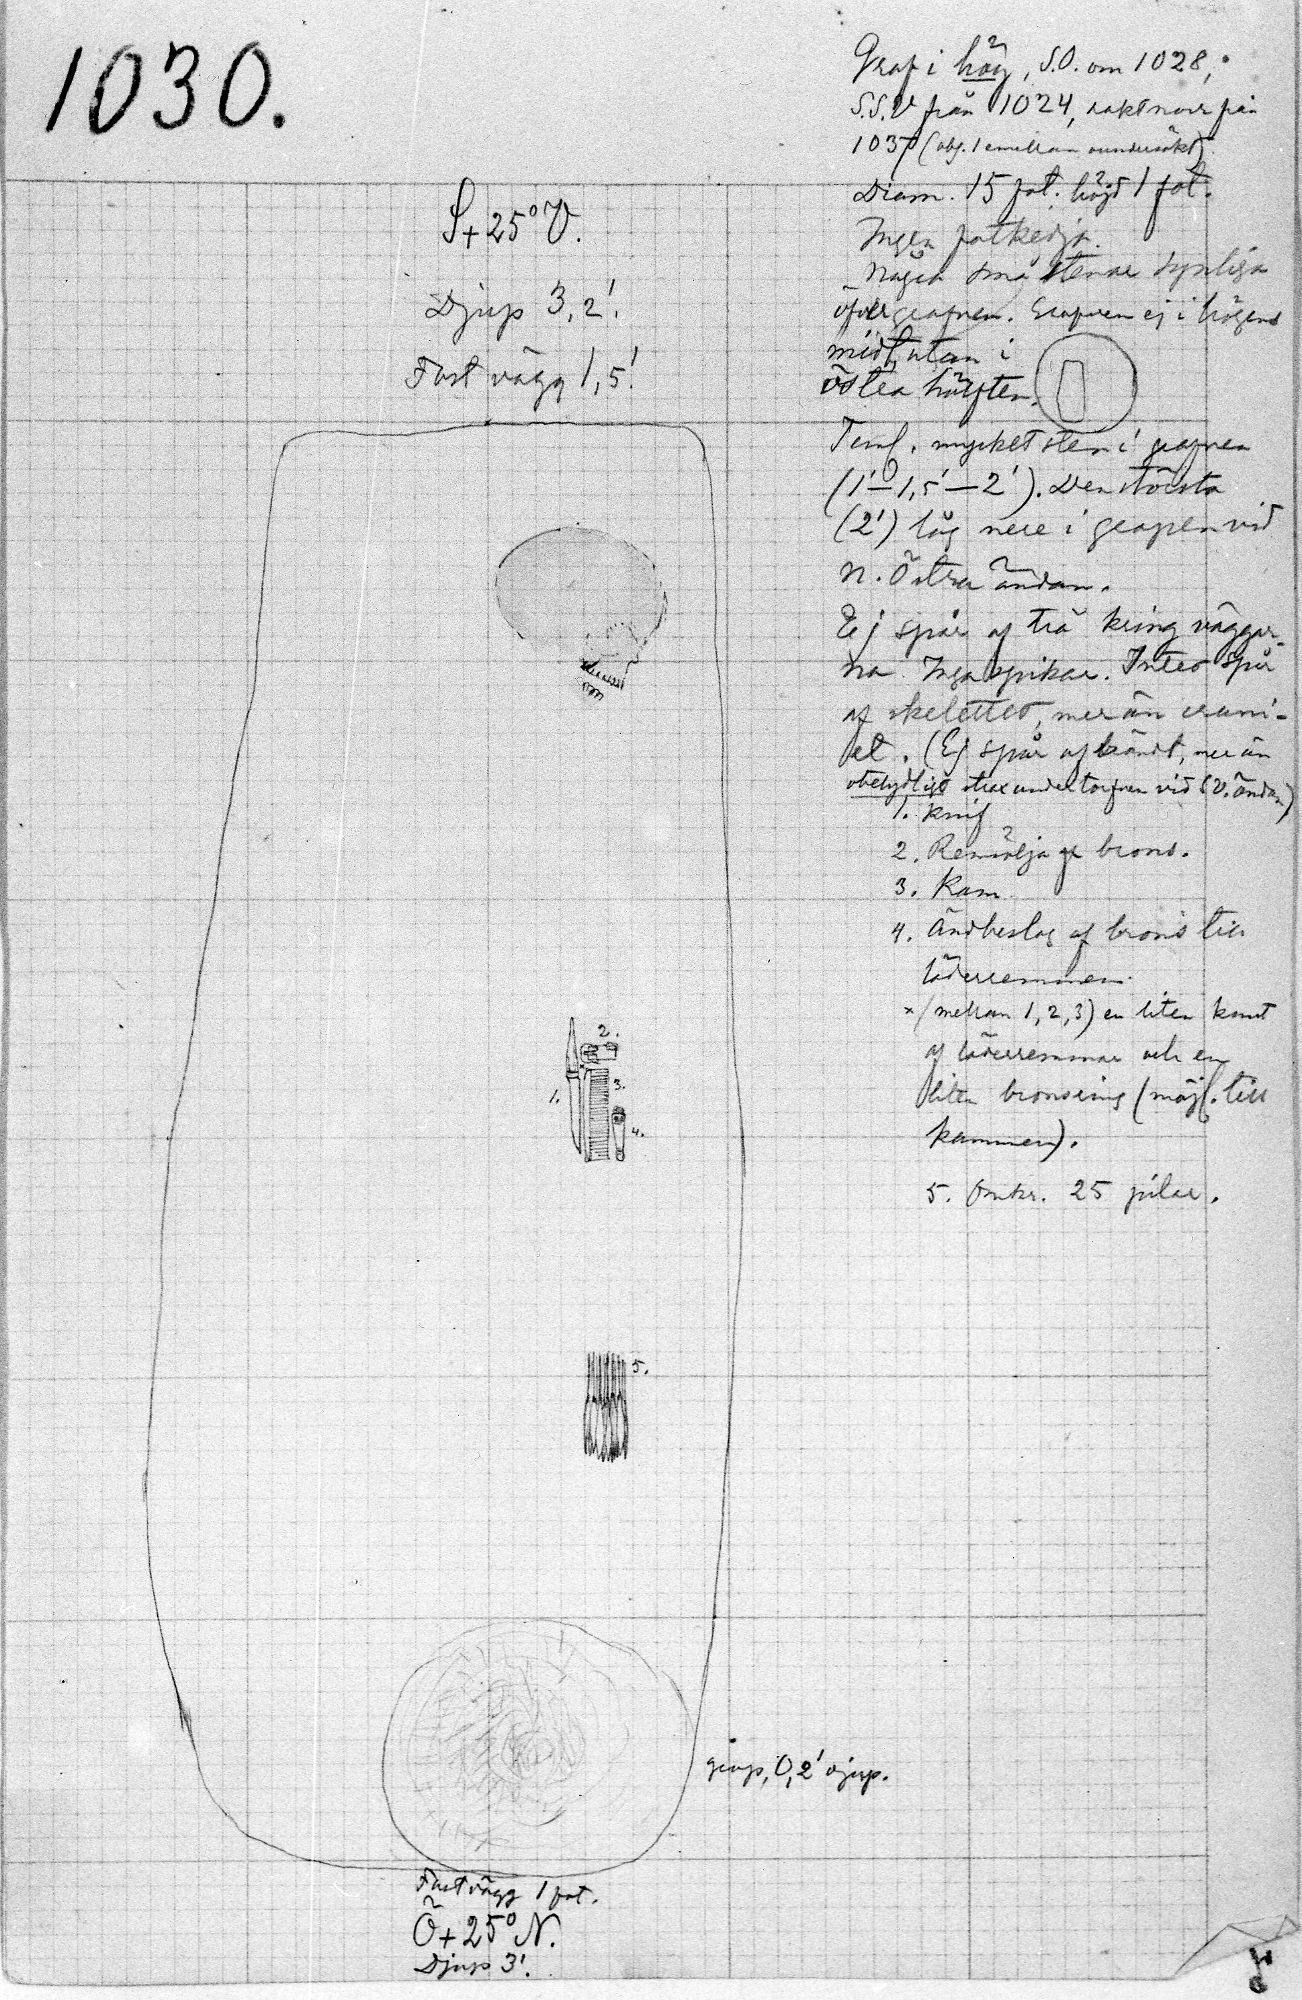 1030.
Graf i hög, S.O. om 1028,
S.S.V från 1024, rakt norr från
1037 (obs. 1 emellan oundersökt).
Diam. 15 fot; höjd 1 fot.
Ingen fotkedja.
Några små stenar synliga
öfver grafven. Grafven ej i högens
midt, utan i
östra hälften.
Teml. mycket sten i grafven
(1'–1,5'–2'). Den största
(2') låg nere i grafven vid
N. Östra ändan.
Ej spår af trä kring väggar-
na. Inga spikar. Intet spår
af skelettet, mer än crani-
et. (Ej spår af brändt, mer än
obetydligt strax under torfven vid SV. ändan)
1. Knif
2. Remsölja af brons.
3. Kam
4. Ändbeslag af brons till
läderremmen.
× (mellan 1, 2, 3) en liten knut
af läderremmar och en
liten bronsring (möjl. till
kammen).
5. Omkr. 25 pilar.
S+25° V.
Djup 3,2'.
Fast vägg 1,5'.
2.
1.
3.
4.
5.
grop, 0,2' djup.
Fast vägg 1 fot.
Ö+25° N.
Djup 3'.